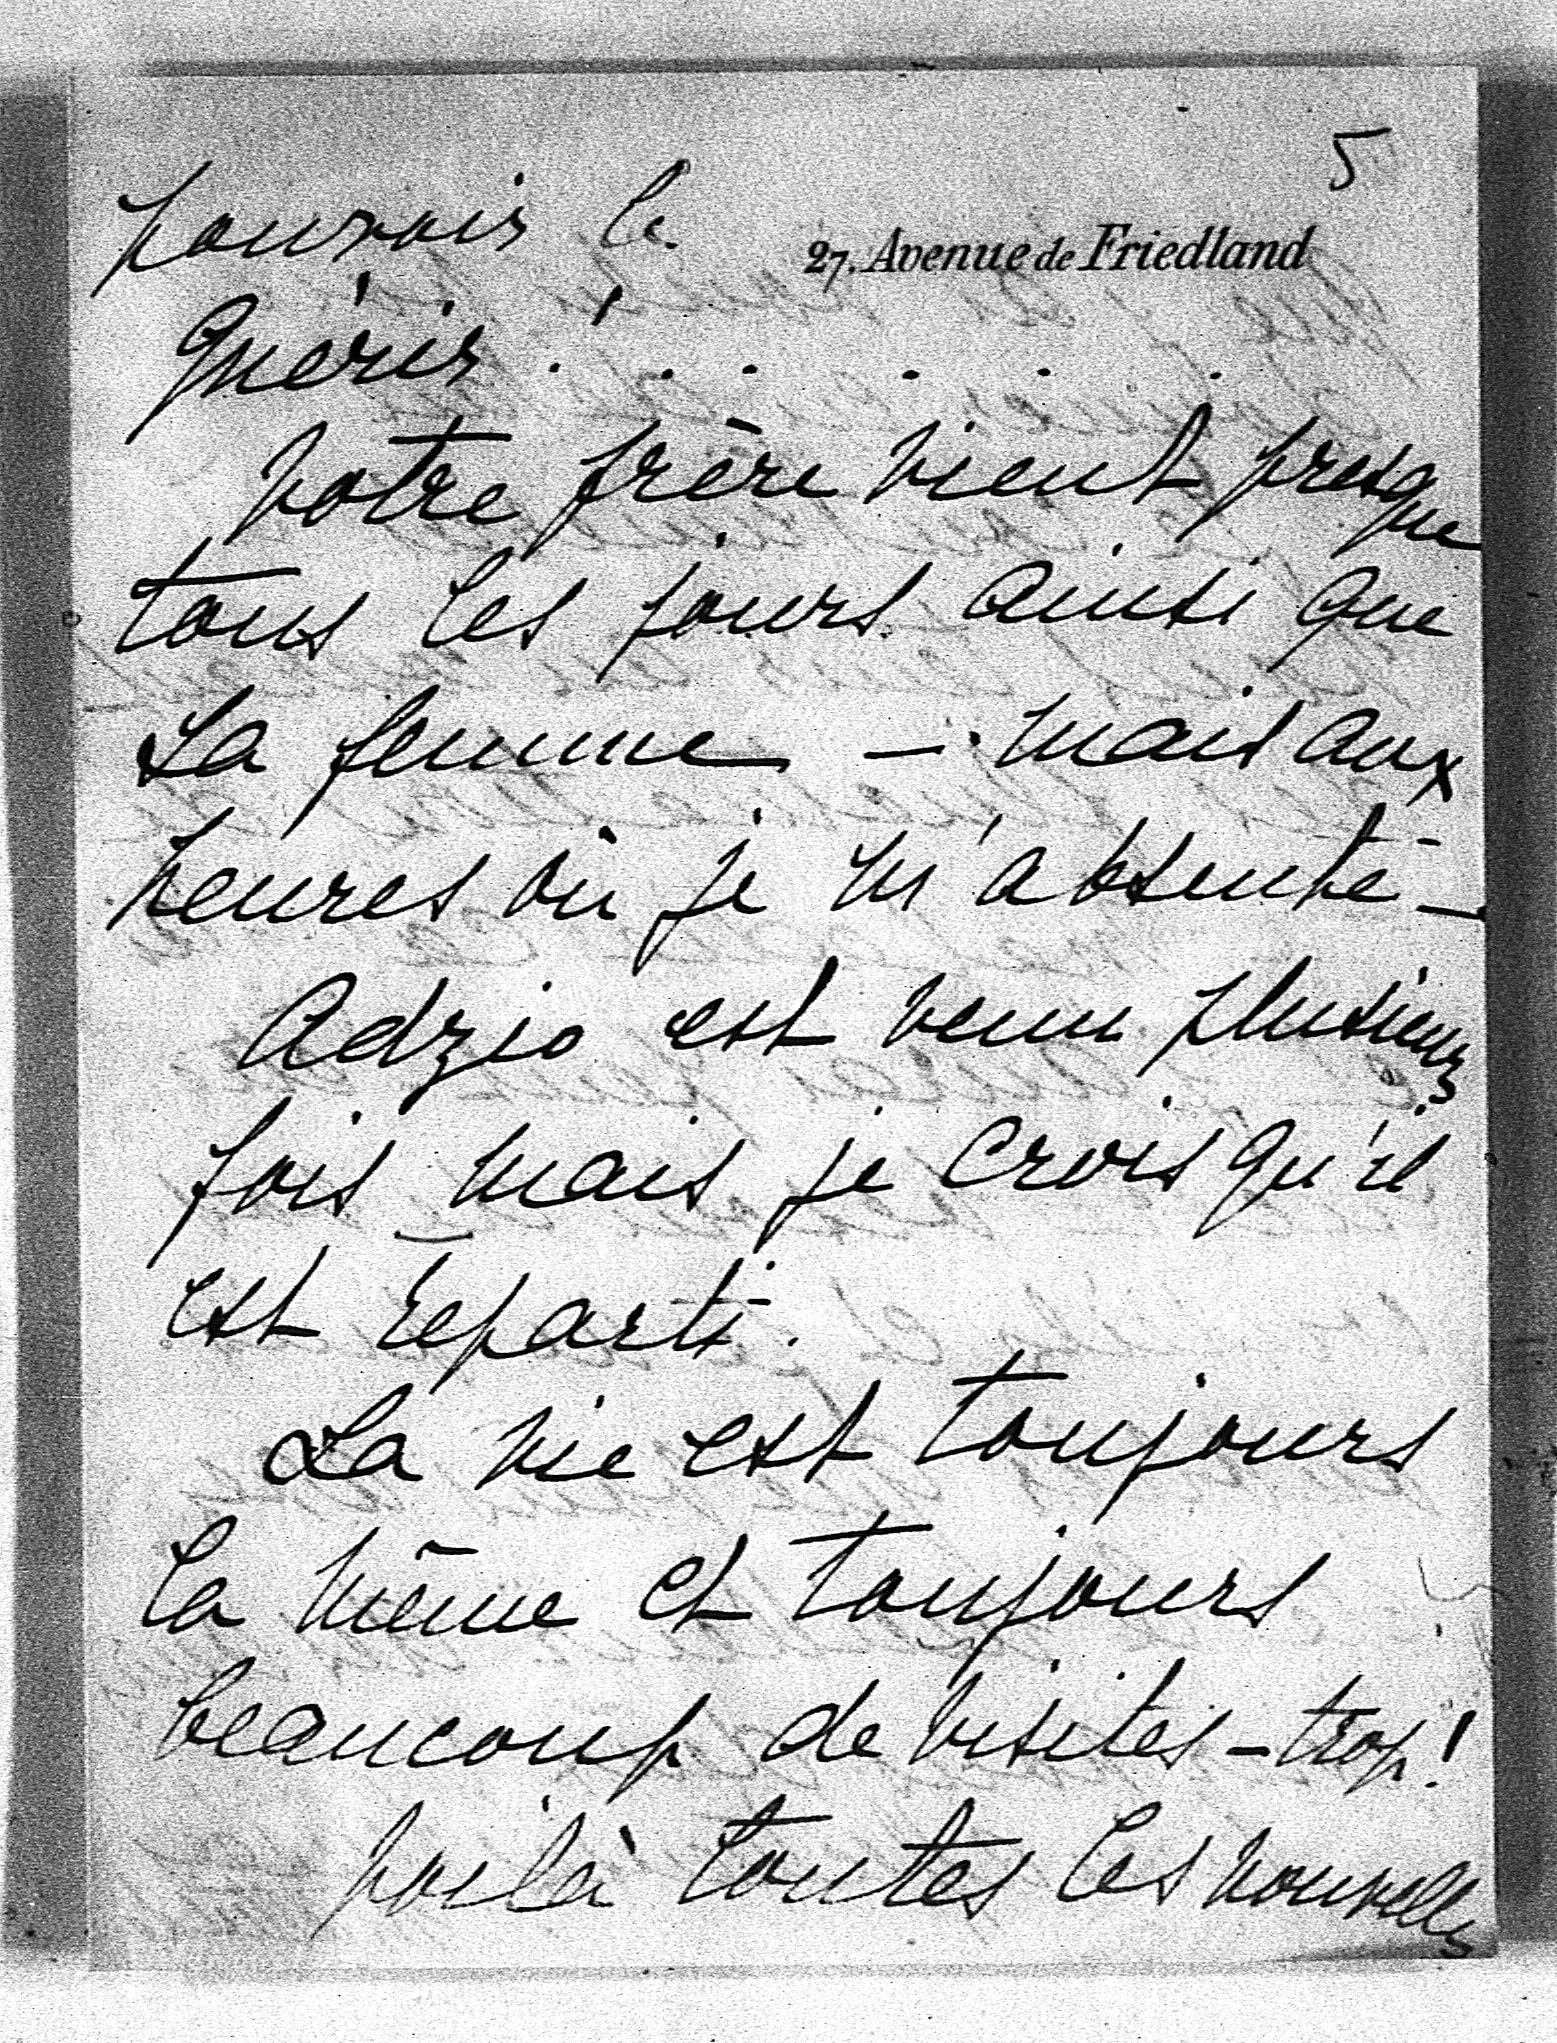 5
27, Avenue de Friedland
pouvoir le
guérir ! . . . . . .
Votre frère vient presque
tous les jours ainsi que
sa femme — mais aux
heures où je m'absente —
Adzio est venu plusieurs
fois mais je crois qu'il
est reparti.
La vie est toujours
la même et toujours
beaucoup de visites – trop !
Voilà toutes les nouvelles